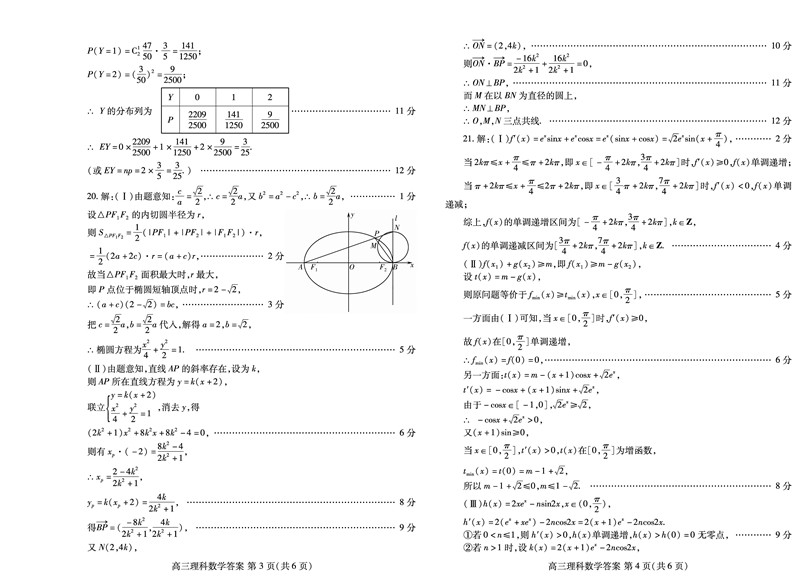 P(Y=1)=C₂¹ 47/50 · 3/5 = 141/1250;
P(Y=2)=(3/50)²=9/2500;
∴ Y的分布列为
Y 0 1 2
P 2209/2500 141/1250 9/2500
…… 11分
∴ EY=0×2209/2500+1×141/1250+2×9/2500=3/25.
(或EY=np=2×3/5=3/25.) …… 12分
20. 解:(Ⅰ)由题意知:c/a=√2/2,∴c=√2/2a,又b²=a²-c²,∴b=√2/2a, …… 1分
设△PF₁F₂的内切圆半径为r,
则S△PF₁F₂=1/2(|PF₁|+|PF₂|+|F₁F₂|)·r,
=1/2(2a+2c)·r=(a+c)r, …… 2分
故当△PF₁F₂面积最大时,r最大,
即P点位于椭圆短轴顶点时,r=2-√2,
∴(a+c)(2-√2)=bc, …… 3分
把c=√2/2a,b=√2/2a代人,解得a=2,b=√2,
∴椭圆方程为x²/4+y²/2=1. …… 5分
y l
N
P
M
A F₁ O F₂ B x
(Ⅱ)由题意知,直线AP的斜率存在,设为k,
则AP所在直线方程为y=k(x+2),
联立{y=k(x+2) x²/4+y²/2=1,消去y,得
(2k²+1)x²+8k²x+8k²-4=0, …… 6分
则有xₚ·(-2)=8k²-4/2k²+1,
∴xₚ=2-4k²/2k²+1,
yₚ=k(xₚ+2)=4k/2k²+1, …… 8分
得BP→=(-8k²/2k²+1,4k/2k²+1), …… 9分
又N(2,4k),
高三理科数学答案 第3页(共6页)
∴ON→=(2,4k), …… 10分
则ON→·BP→=-16k²/2k²+1+16k²/2k²+1=0,
∴ON⊥BP, …… 11分
而M在以BN为直径的圆上,
∴MN⊥BP,
∴O,M,N三点共线. …… 12分
21. 解:(Ⅰ)f′(x)=eˣsinx+eˣcosx=eˣ(sinx+cosx)=√2eˣsin(x+π/4), …… 2分
当2kπ≤x+π/4≤π+2kπ,即x∈[-π/4+2kπ,3π/4+2kπ]时,f′(x)≥0,f(x)单调递增;
当π+2kπ≤x+π/4≤2π+2kπ,即x∈[3/4π+2kπ,7π/4+2kπ]时,f′(x)<0,f(x)单调
递减;
综上,f(x)的单调递增区间为[-π/4+2kπ,3π/4+2kπ],k∈Z,
f(x)的单调递减区间为[3π/4+2kπ,7π/4+2kπ],k∈Z. …… 4分
(Ⅱ)f(x₁)+g(x₂)≥m,即f(x₁)≥m-g(x₂),
设t(x)=m-g(x),
则原问题等价于fmin(x)≥tmin(x),x∈[0,π/2], …… 5分
一方面由(Ⅰ)可知,当x∈[0,π/2]时,f′(x)≥0,
故f(x)在[0,π/2]单调递增,
∴fmin(x)=f(0)=0, …… 6分
另一方面:t(x)=m-(x+1)cosx+√2eˣ,
t′(x)=-cosx+(x+1)sinx+√2eˣ,
由于-cosx∈[-1,0],√2eˣ≥√2,
∴ -cosx+√2eˣ>0,
又(x+1)sin≥0,
当x∈[0,π/2],t′(x)>0,t(x)在[0,π/2]为增函数,
tmin(x)=t(0)=m-1+√2,
所以m-1+√2≤0,m≤1-√2. …… 8分
(Ⅲ)h(x)=2xeˣ-nsin2x,x∈(0,π/2),
h′(x)=2(eˣ+xeˣ)-2ncos2x=2(x+1)eˣ-2ncos2x.
①若0<n≤1,则h′(x)>0,h(x)单调递增,h(x)>h(0)=0无零点, …… 9分
②若n>1时,设k(x)=2(x+1)eˣ-2ncos2x,
高三理科数学答案 第4页(共6页)